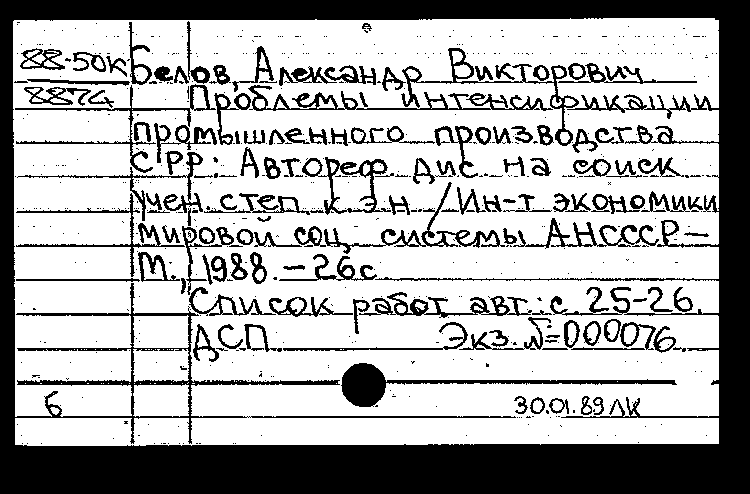 88-50К Белов, Александр Викторович.
8874 Проблемы интенсификации
промышленного производства
СРР: Автореф. дис. на соиск
учен. степ. к.э.н /Ин-т экономики
мировой соц. системы АНСССР-
М., 1988. - 26с.
Список работ авт.: с. 25-26.
ДСП. Экз. №=000076.
б 30.01.89 ЛК